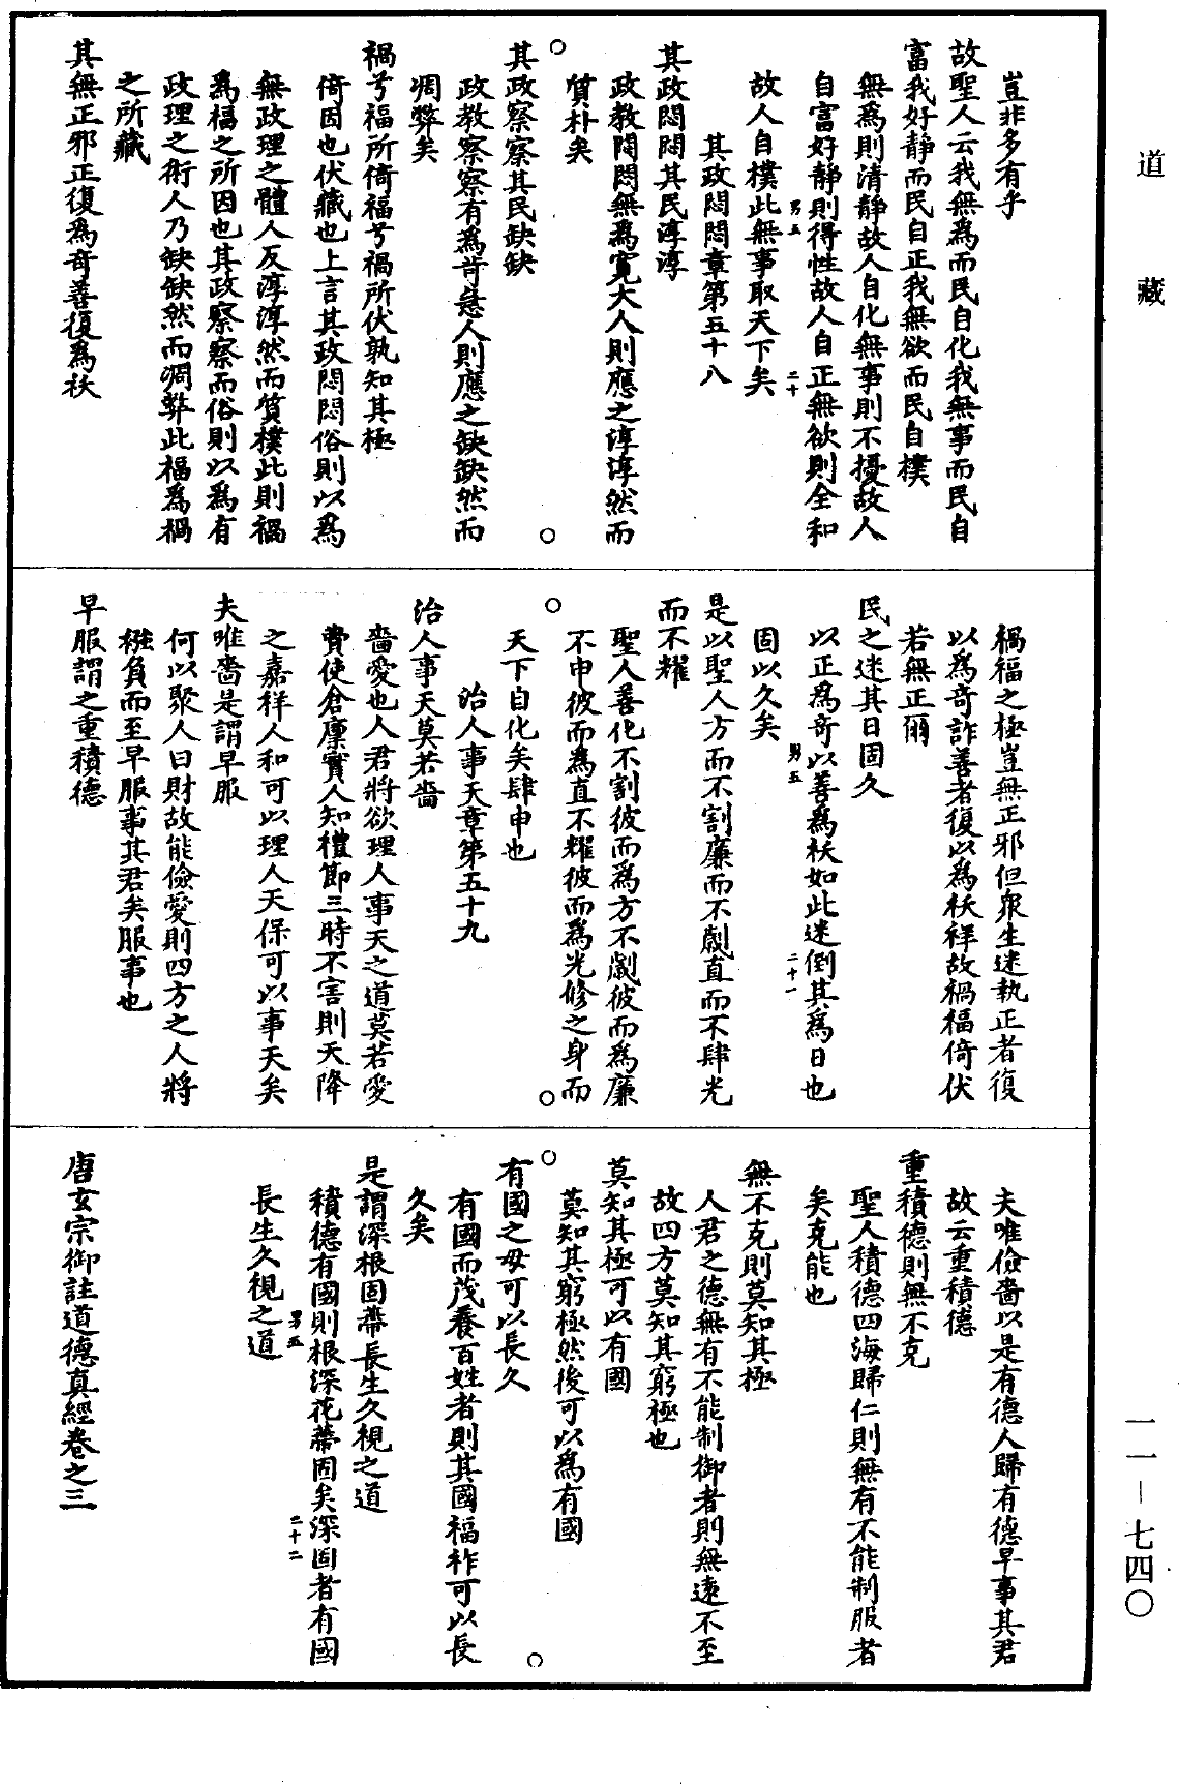 道藏
豈非多有乎
故聖人云我無為而民自化我無事而民自
富我好靜而民自正我無欲而民自樸
無為則清靜故人自化無事則不擾故人
自富好靜則得性故人自正無欲則全和
男五
二十
故人自樸此無事取天下矣
其政悶悶章第五十八
其政悶悶其民淳淳
政教悶悶無為寬大人則應之淳淳然而
質朴矣
其政察察其民缺缺
政教察察有為苛急人則應之缺缺然而
凋弊矣
禍兮福所倚福兮禍所伏孰知其極
倚因也伏藏也上言其政悶悶俗則以為
無政理之體人反淳淳然而質樸此則禍
為福之所因也其政察察而俗則以為有
政理之術人乃缺缺然而凋弊此福為禍
之所藏
其無正邪正復為奇善復為祅
禍福之極豈無正邪但眾生迷執正者復
以為奇詐善者復以為祅祥故禍福倚伏
若無正爾
民之迷其日固久
以正為奇以善為祅如此迷倒其為日也
男五
二十一
固以久矣
是以聖人方而不割廉而不劌直而不肆光
而不耀
聖人善化不割彼而為方不劌彼而為廉
不申彼而為直不耀彼而為光修之身而
天下自化矣肆申也
治人事天章第五十九
治人事天莫若嗇
嗇愛也人君將欲理人事天之道莫若愛
費使倉廩實人知禮節三時不害則天降
之嘉祥人和可以理人天保可以事天矣
夫唯嗇是謂早服
何以聚人曰財故能儉愛則四方之人將
襁負而至早服事其君矣服事也
早服謂之重積德
夫唯儉嗇以是有德人歸有德早事其君
故云重積德
重積德則無不克
聖人積德四海歸仁則無有不能制服者
矣克能也
無不克則莫知其極
人君之德無有不能制御者則無遠不至
故四方莫知其窮極也
莫知其極可以有國
莫知其窮極然後可以為有國
有國之母可以長久
有國而茂養百姓者則其國福祚可以長
久矣
是謂深根固蔕長生久視之道
積德有國則根深花蔕固矣深固者有國
男五
二十二
長生久視之道
唐玄宗御註道德真經卷之三
一一—七四〇